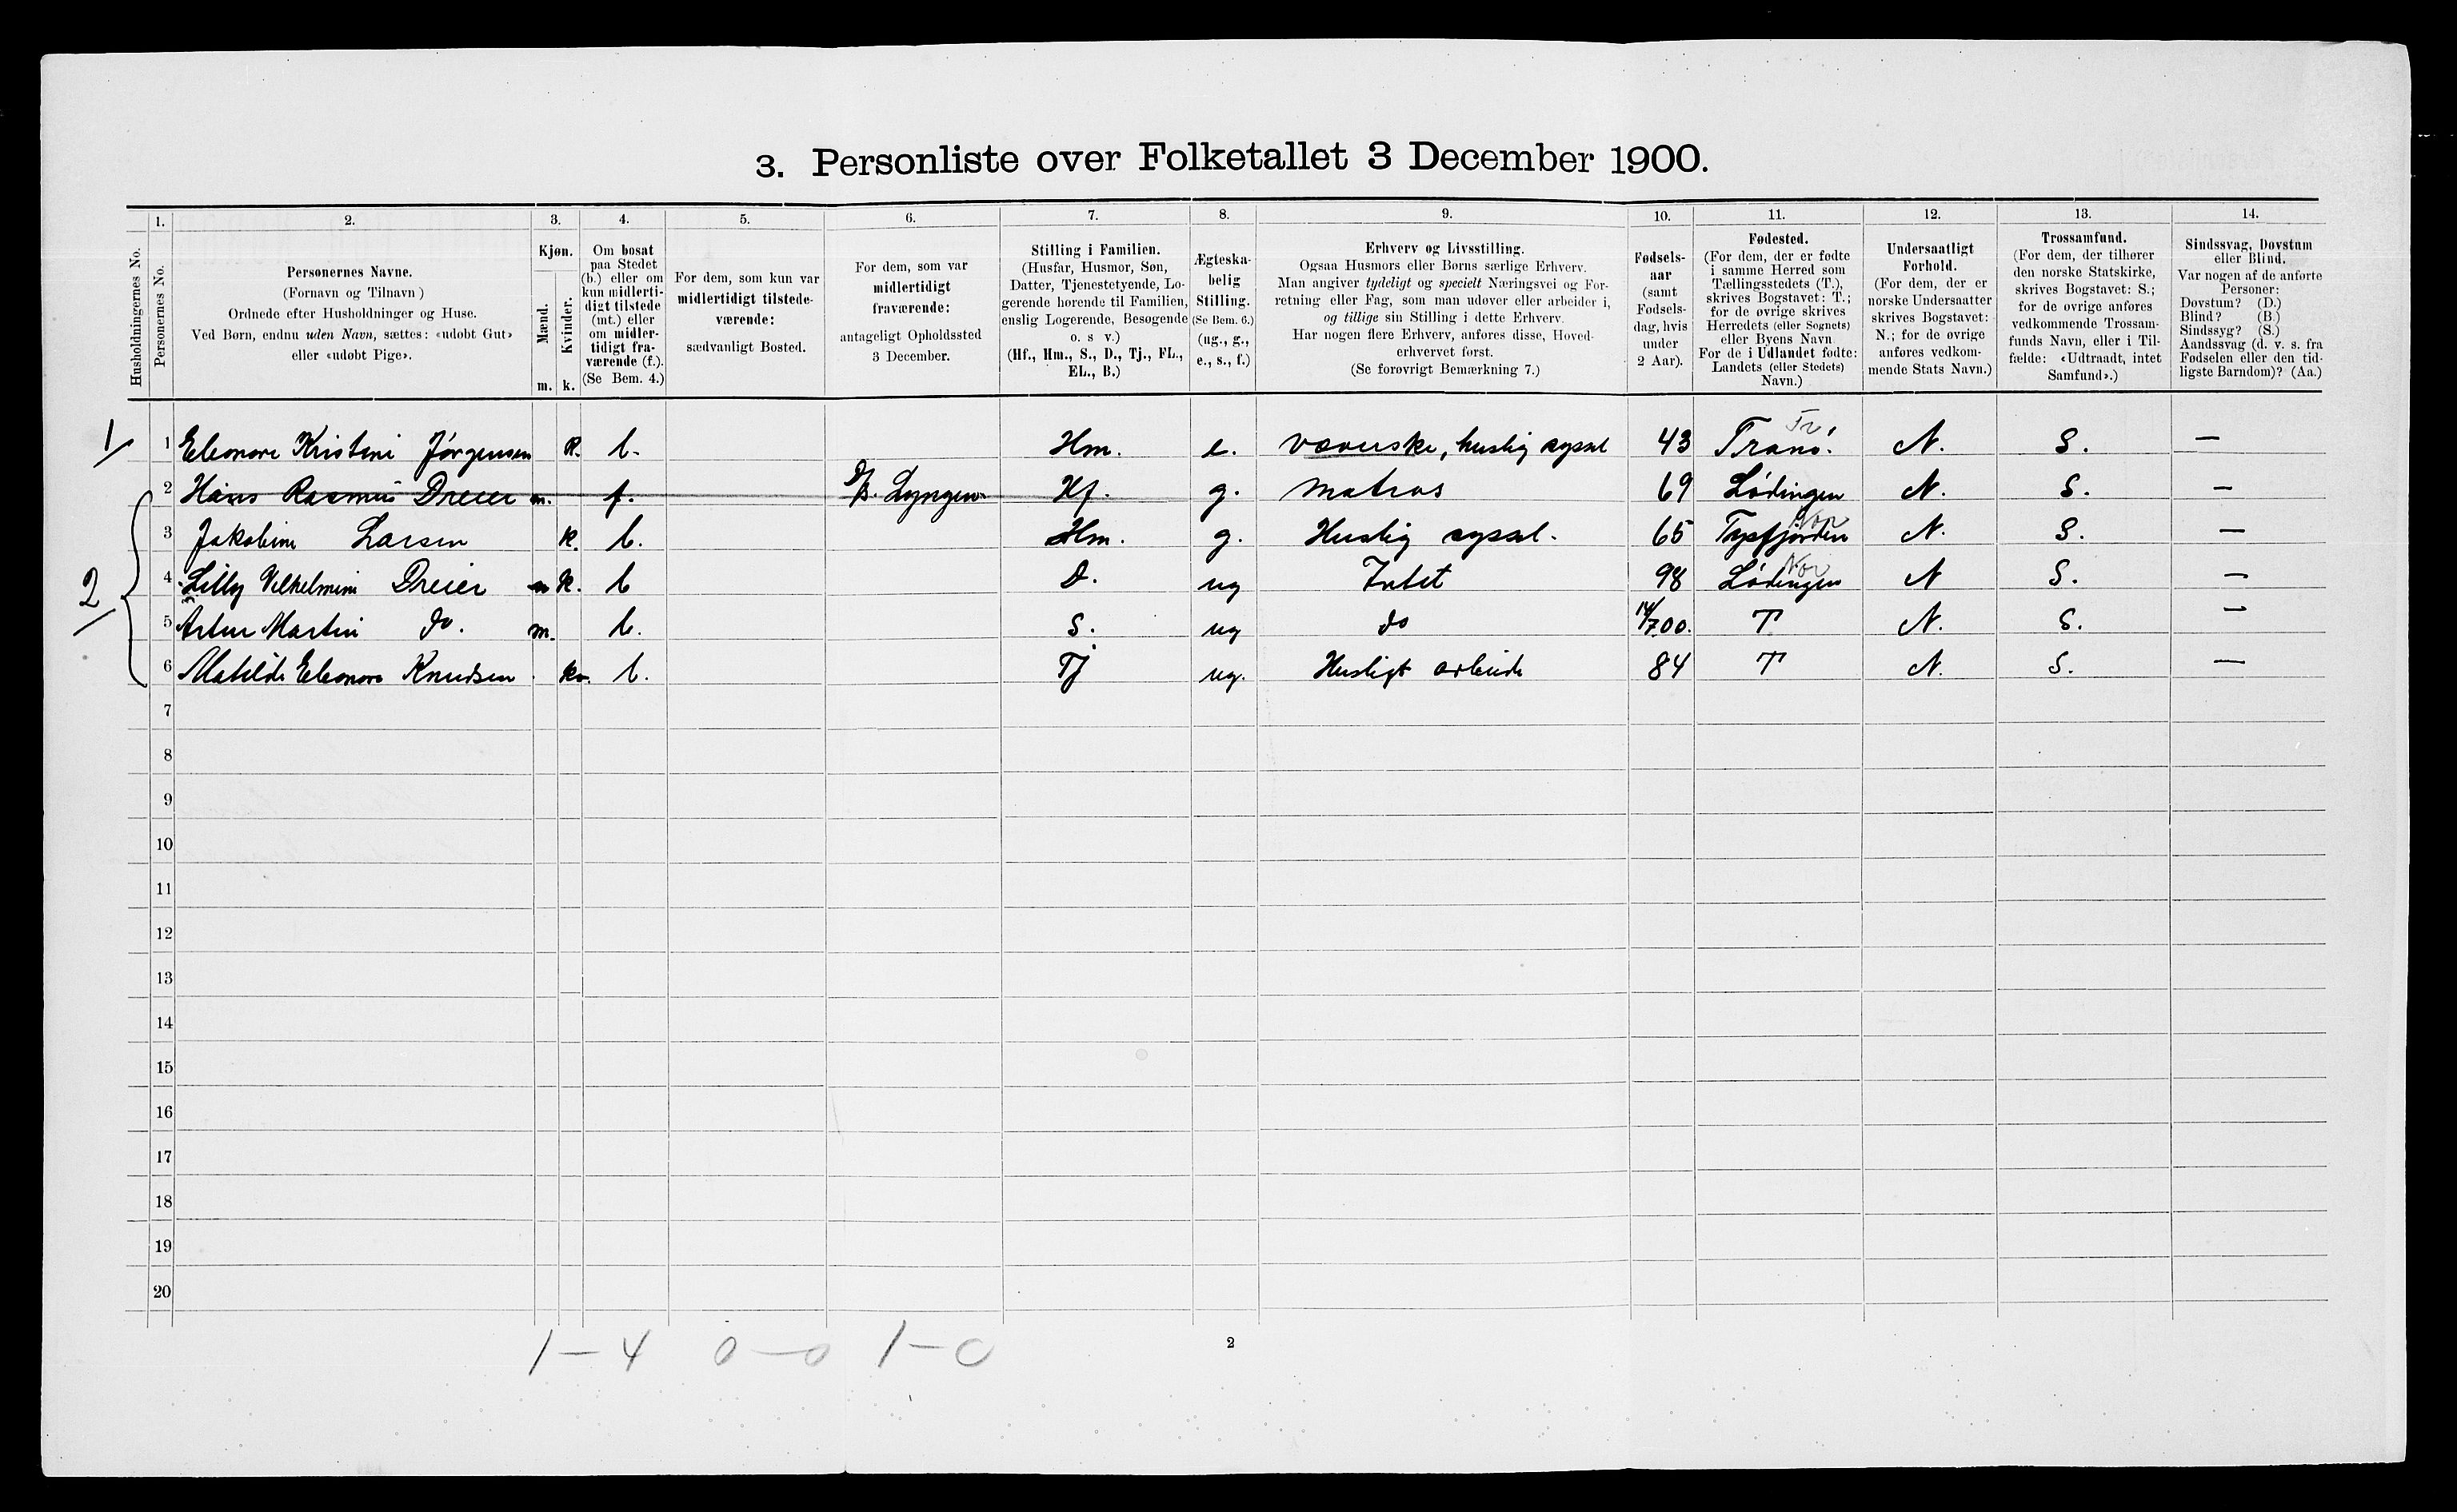 3. Personliste over Folketallet 3 December 1900.
1. 2. 3. 4. 5. 6. 7. 8. 9. 10. 11. 12. 13. 14.
Husholdningernes No.
Personernes No.
Personernes Navne.
(Fornavn og Tilnavn)
Ordnede efter Husholdninger og Huse.
Ved Børn, endnu uden Navn, sættes: «udøbt Gut»
eller «udøbt Pige».
Kjøn.
Mænd.
Kvinder.
m. k.
Om bosat
paa Stedet
(b.) eller om
kun midlerti-
digt tilstede
(mt.) eller
om midler-
tidigt fra-
værende (f.).
(Se Bem. 4.)
For dem, som kun var
midlertidigt tilstede-
værende:
sædvanligt Bosted.
For dem, som var
midlertidigt
fraværende:
antageligt Opholdssted
3 December.
Stilling i Familien.
(Husfar, Husmor, Søn,
Datter, Tjenestetyende, Lo-
gerende hørende til Familien,
enslig Logerende, Besøgende
o. s v.)
(Hf., Hm., S., D., Tj., FL.,
EL., B.)
Ægteska-
belig
Stilling.
(Se Bem. 6.)
(ug., g.,
e., s., f.)
Erhverv og Livsstilling.
Ogsaa Husmors eller Børns særlige Erhverv.
Man angiver tydeligt og specielt Næringsvei og For-
retning eller Fag, som man udøver eller arbeider i,
og tillige sin Stilling i dette Erhverv.
Har nogen flere Erhverv, anføres disse, Hoved-
erhvervet først.
(Se forøvrigt Bemærkning 7.)
Fødsels-
aar
(samt
Fødsels-
dag, hvis
under
2 Aar).
Fødested.
(For dem, der er fødte
i samme Herred som
Tællingsstedets (T.),
skrives Bogstavet: T.;
for de øvrige skrives
Herredets (eller Sognets)
eller Byens Navn
For de i Udlandet fødte:
Landets (eller Stedets)
Navn.)
Undersaatligt
Forhold.
(For dem, der er
norske Undersaatter
skrives Bogstavet:
N.; for de øvrige
anføres vedkom-
mende Stats Navn.)
Trossamfund.
(For dem, der tilhører
den norske Statskirke,
skrives Bogstavet: S.;
for de øvrige anføres
vedkommende Trossam-
funds Navn, eller i Til-
fælde: «Udtraadt, intet
Samfund».)
Sindssvag, Døvstum
eller Blind.
Var nogen af de anførte
Personer:
Døvstum? (D.)
Blind? (B.)
Sindssyg? (S.)
Aandssvag (d. v. s. fra
Fødselen eller den tid-
ligste Barndom)? (Aa.)
1 1 Eleonore Kristine Jørgensen k. b. Hm. e. væverske, huslig syssel 43 Tranø. Tr N. S. —
2 Hans Rasmus Dreier m. f. Lyngen Hf. g. matros 69 Lødingen N. S. —
3 Jakobine Larsen k. b. Hm. g. Huslig syssel. 65 Tysfjorden Nor N. S. —
2 4 Lilly Vilhelmine Dreier k. b D. ug Intet 98 Lødingen Nor N S. —
5 Artur Martin do. m. b. S. ug do 14/7.00. T N. S. —
6 Matilde Eleonore Knudsen kv. b. Tj ug. Husligt arbeide 84 T N. S. —
7
8
9
10
11
12
13
14
15
16
17
18
19
20
1–4 0–0 1–0
2